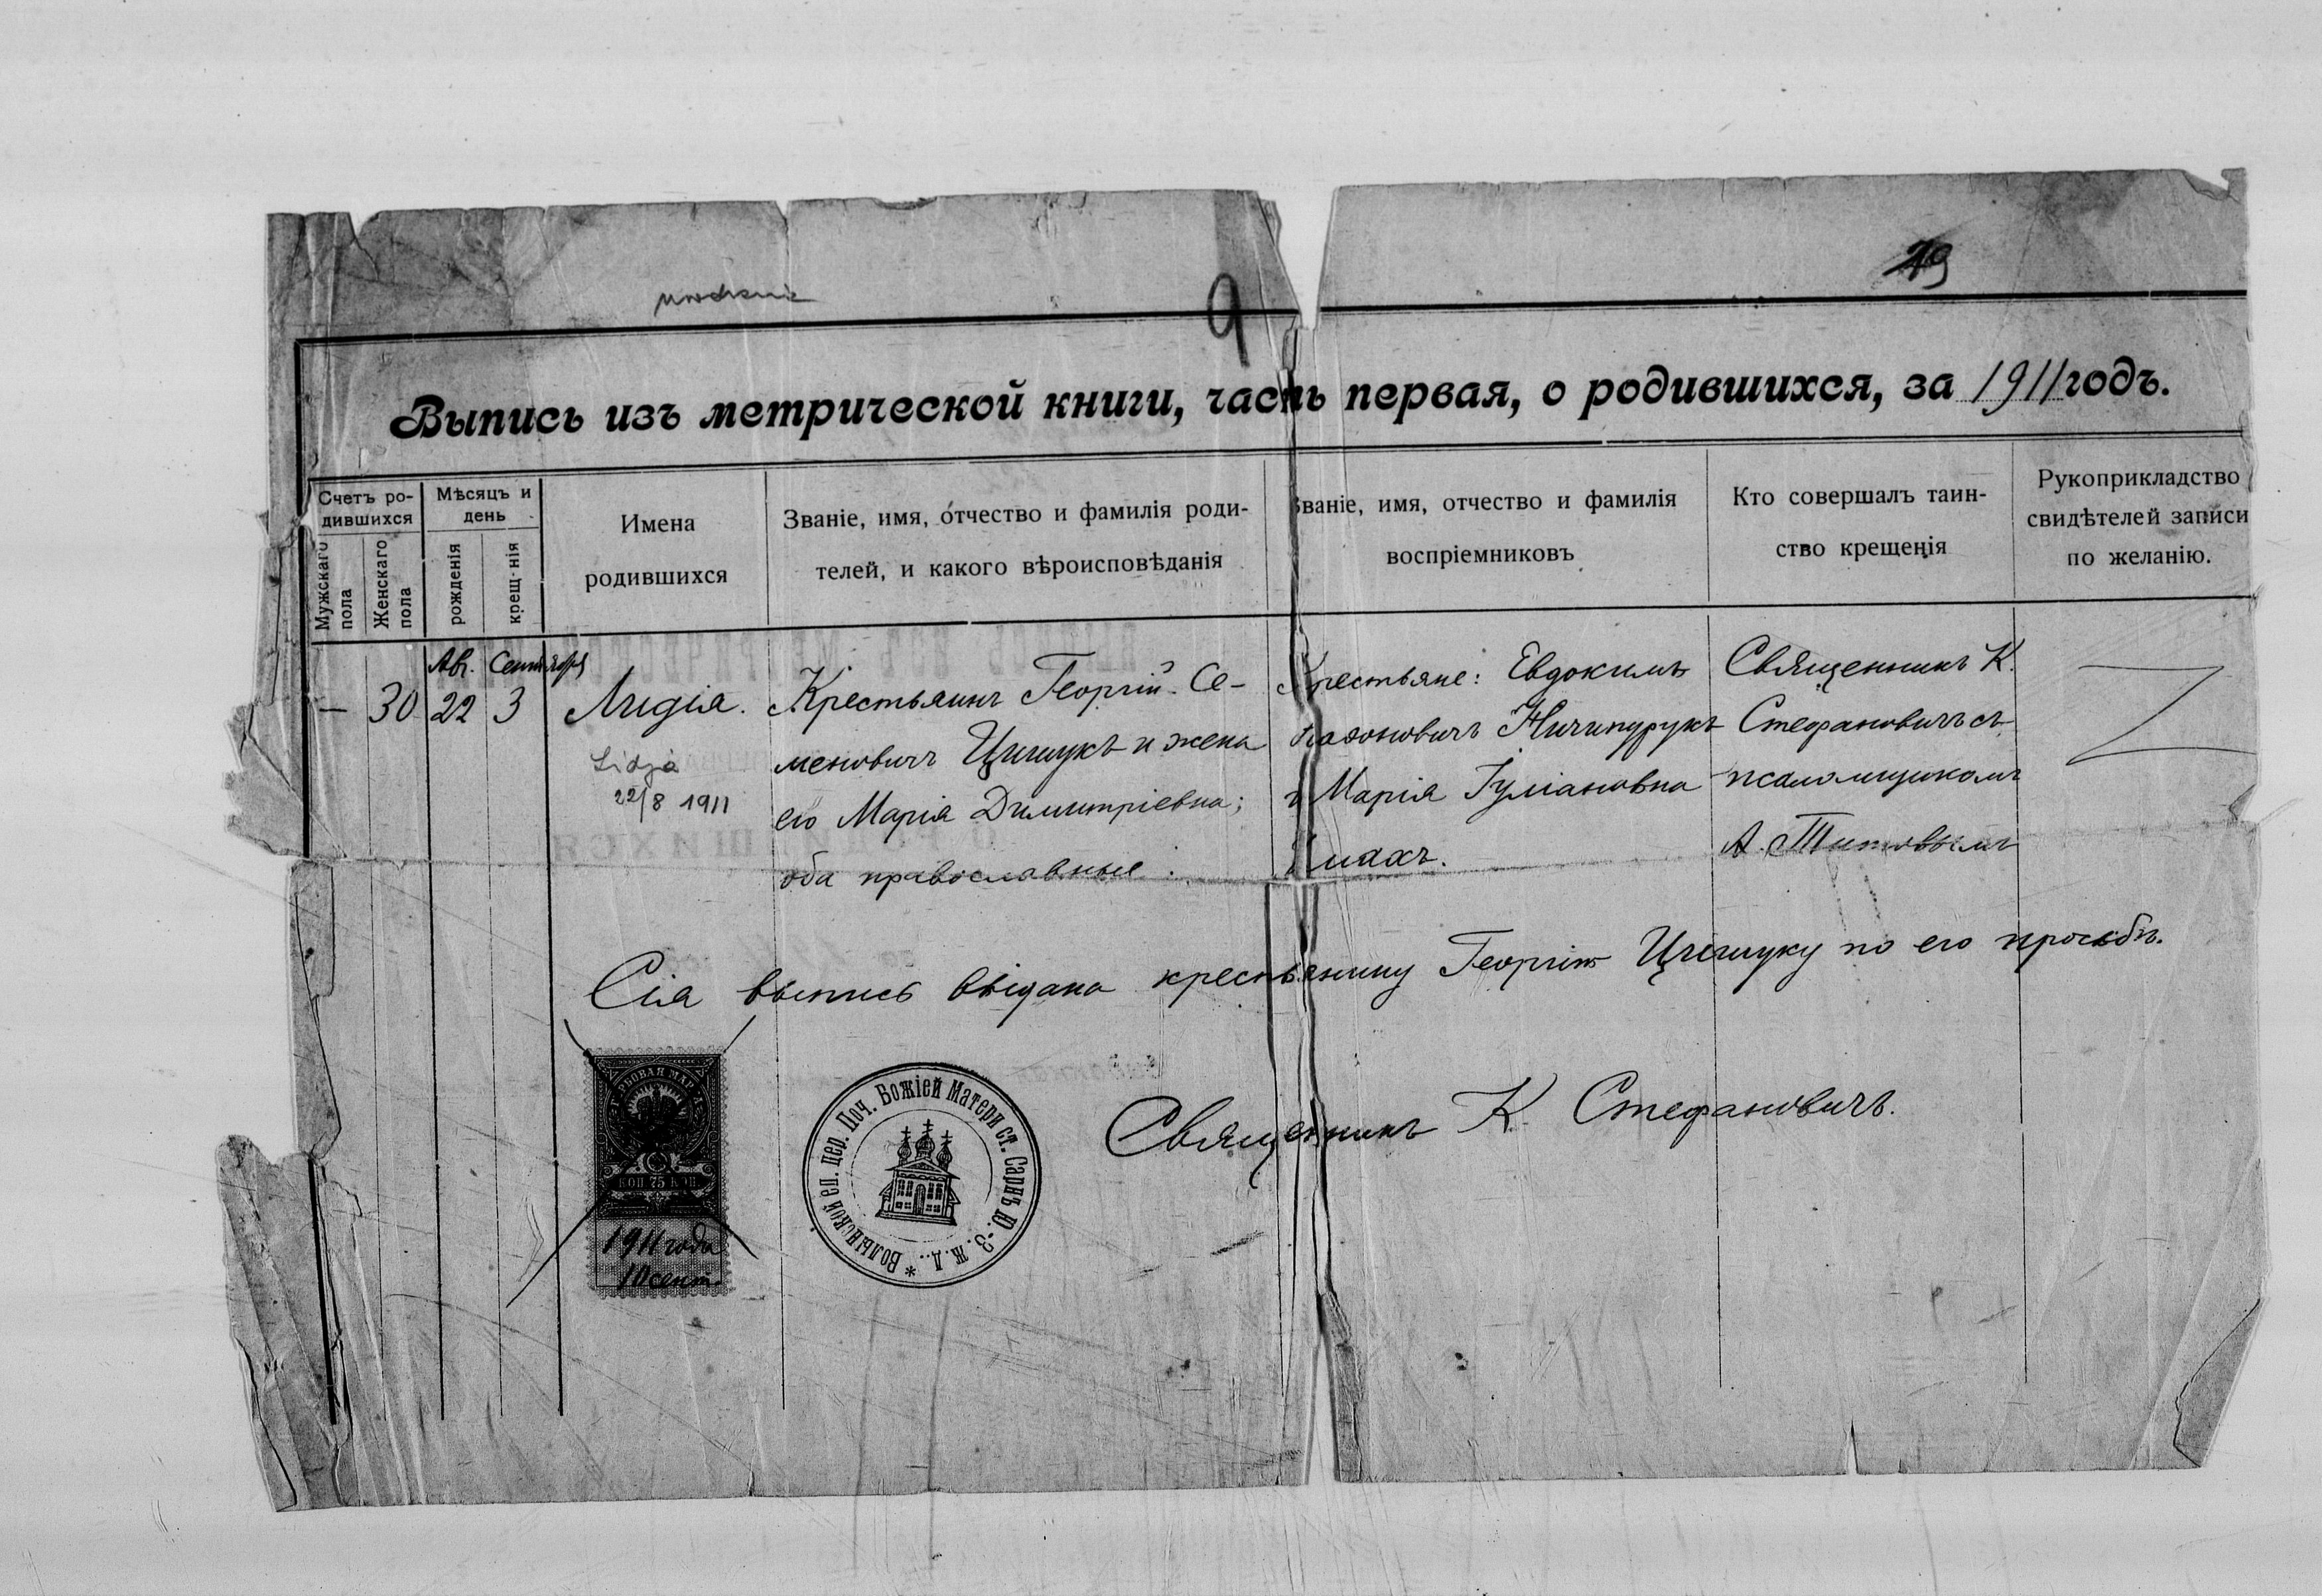 urodzenie
9
Выпись изъ метрической книги, часть первая, о родившихся, за 1911 годъ.
Счетъ ро-
дившихся
Мужскаго
пола
Женскаго
пола
Мѣсяцъ и
день
рожденія
крещ-нія
Имена
родившихся
Званіе, имя, отчество и фамилія роди-
телей, и какого вѣроисповѣданія
Званіе, имя, отчество и фамилія
воспріемниковъ
Кто совершалъ таин-
ство крещенія
Рукоприкладство
свидѣтелей записи
по желанію.
—
30
Авг.
22
Сентября
3
Лидія.
Lidja
22/8 1911
Крестьянинъ Георгій Се-
меновичъ Цишукъ и жена
его Марія Димитріевна;
оба православные.
Крестьяне: Евдокимъ
Ничипурукъ
и Марія Іуліановна
Священникъ К.
Стефановичъ съ
псаломщикомъ
А. Титовымъ
Сія выпись выдана крестьянину Георгію Цишуку по его просьбѣ.
Священникъ К. Стефановичъ.
ГЕРБОВАЯ МАРКА
КОП. 75 КОП.
1911 года
10 сент.
* Волынской еп. цер. Поч. Божіей Матери ст. Сарнъ Ю.-З. ж. д.